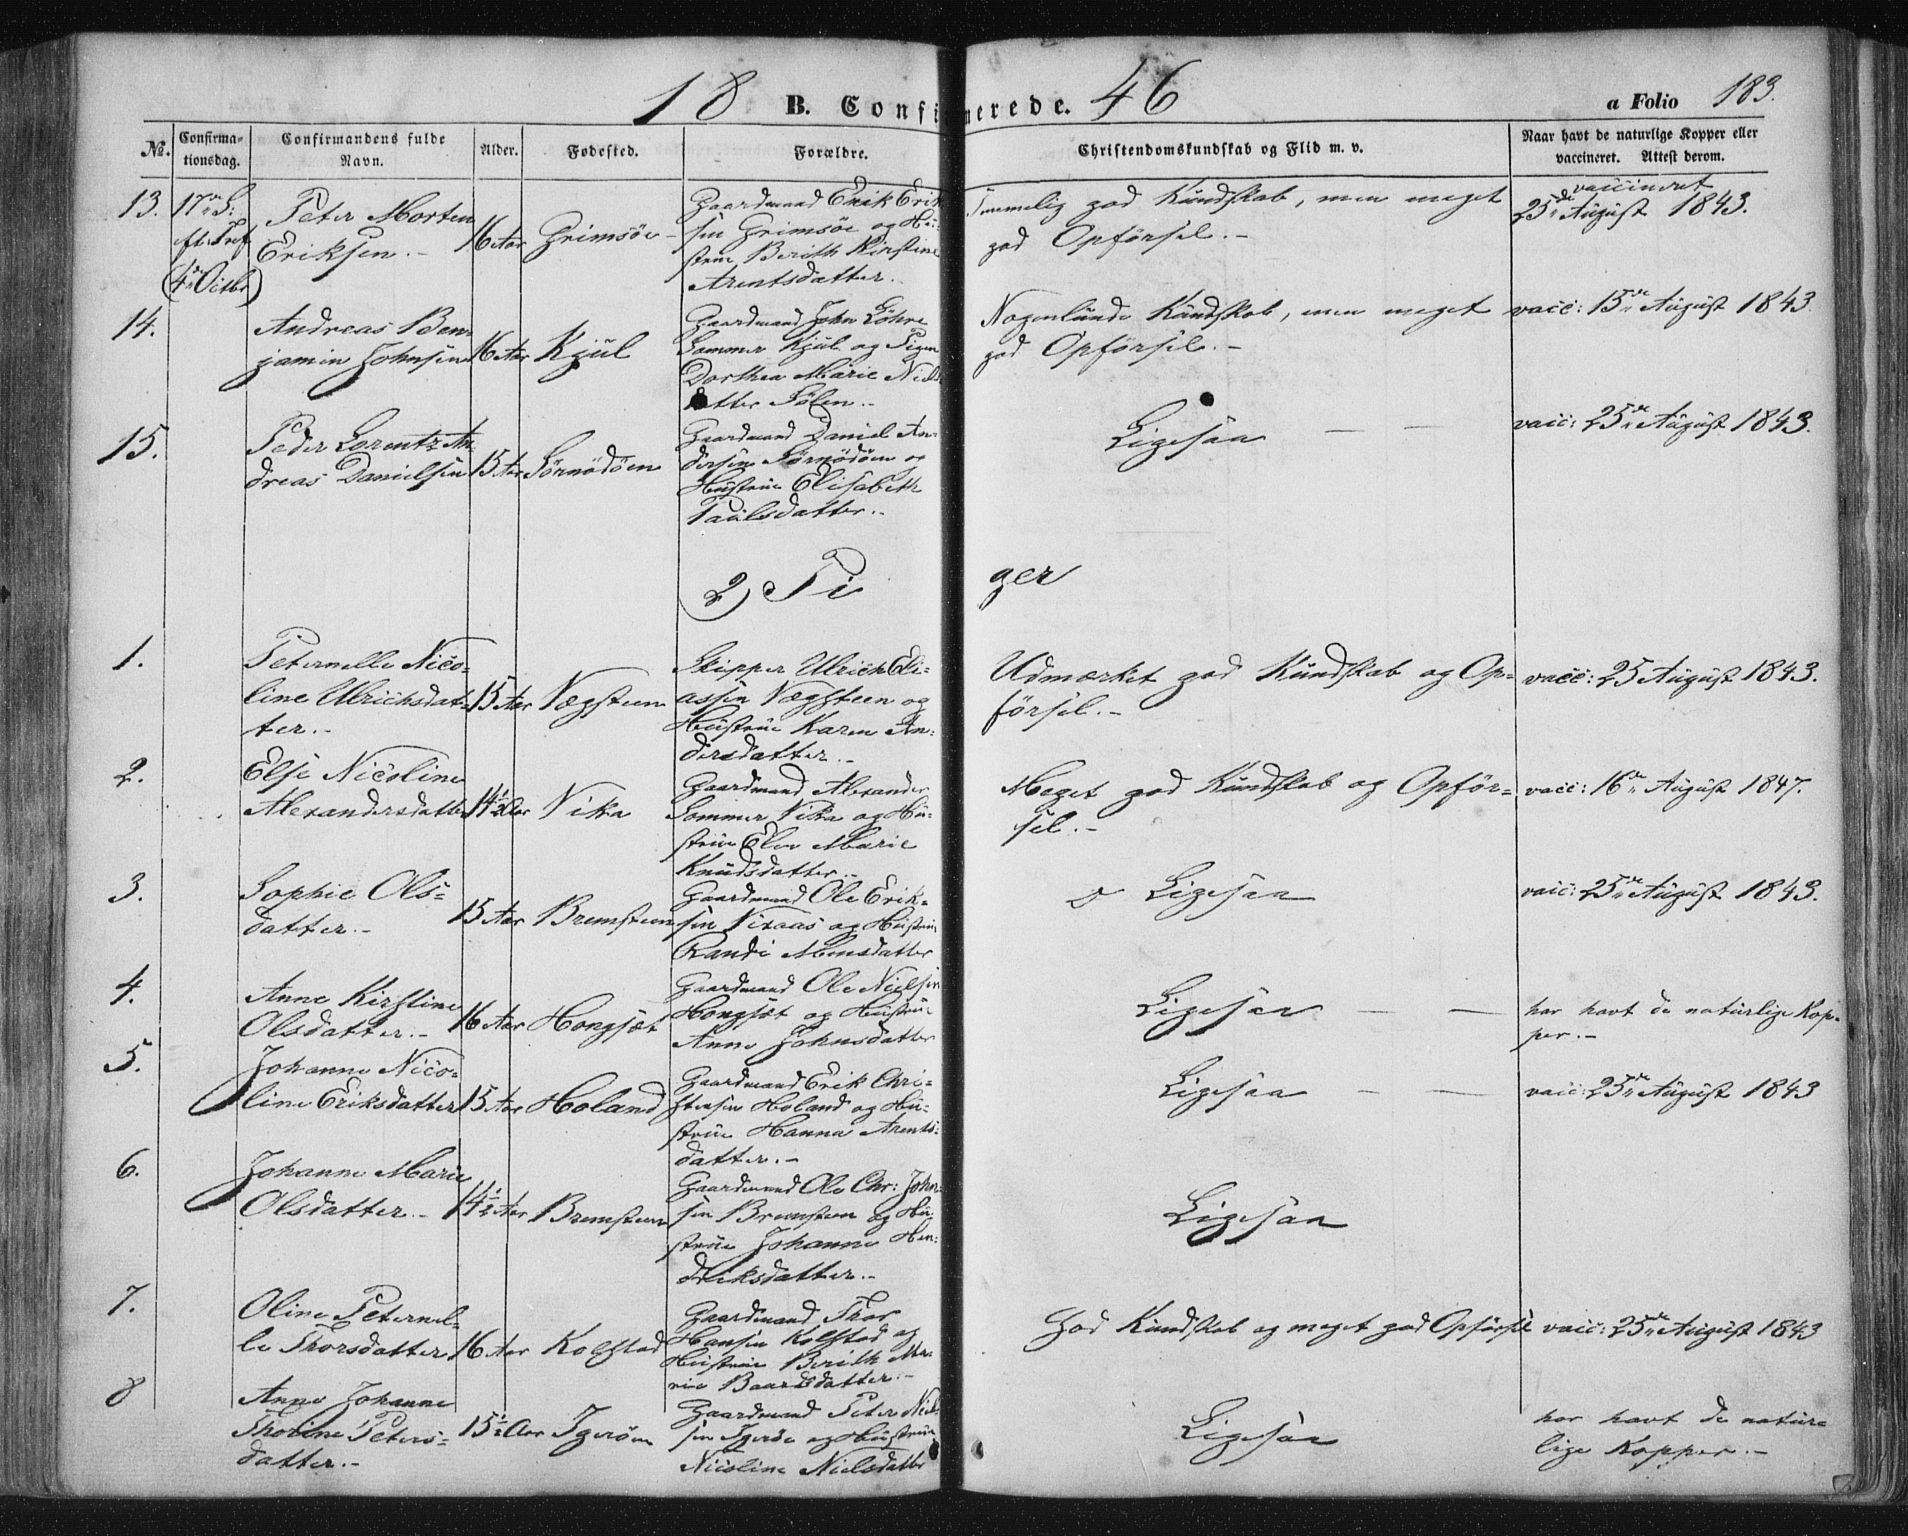 18 B. Confirmerede. 46
a Folio 183.
No. Confirmationsdag. Confirmandens fulde Navn. Alder. Fødested. Forældre. Christendomskundskab og Flid m. v. Naar havt de naturlige Kopper eller vaccineret. Attest derom.
13. 17de S:
eft. Tref
(4de Octbr)
Peter Morten
Eriksen.-
16 Aar
Grimsöe
Gaardmand Erik Erik
sen Grimsöe og Hu-
strue Berith Kirstine
Arentsdatter.
Temmelig god Kundskab, men meget
god Opförsel.-
vaccineret
25de August 1843.
14.
Andreas Ben-
jamin Johnsen
16 Aar
Kjül
Gaardmand John Löhre
Sommer Kjül og Pigen
Dorthea Marie Niels
datter Sölen.-
Nogenlunde Kundskab, men meget
god Opförsel.-
vacc: 15de August 1843.
15.
Peder Lorentz An-
dreas Danielsen
15 Aar
Sörnödöen
Gaardmand Daniel An-
dersen Sörnödöen og
Hustrue Elisabeth
Paulsdatter.-
Ligesaa — —
vacc: 25de August 1843.
2) Pi
ger
1.
Peternelle Nico-
line Ulrichsdat-
ter.-
15 Aar
Vægsteen
Skipper Ulrich Eli-
assen Vægsteen og
Hustrue Karen An-
dersdatter.-
Udmærket god Kundskab og Op-
försel.-
vacc: 25 August 1843.
2.
Else Nicoline
Alexandersdatter
14½ Aar
Vika
Gaardmand Alexander
Sommer Vika og Hu-
strue Elen Marie
Knudsdatter.-
Meget god Kundskab og Opför-
sel.-
vacc: 16de August 1847.
3.
Sophie Ols-
datter.-
15 Aar
Bremsteen
Gaardmand Ole Erik-
sen Vixaas og Hustrue
Randi Monsdatter
Ligesaa
vacc: 25de August 1843.
4.
Anne Kirstine
Olsdatter.-
16 Aar
Hongsæt
Gaardmand Ole Nielsen
Hongsæt og Hustrue
Anne Johnsdatter
Ligesaa — —
har havt de naturlige Kop-
per.-
5.
Johanne Nico-
line Eriksdatter
15 Aar
Holand
Gaardmand Erik Chri-
stensen Holand og Hu-
strue Hanna Arents-
datter.-
Ligesaa — —
vacc: 25de August 1843
6.
Johanne Marie
Olsdatter.-
14½ Aar
Bremsteen
Gaardmand Ole Chr: John-
sen Bremsteen og Hu-
strue Johanne Hen-
driksdatter.-
Ligesaa
7.
Oline Peternel-
le Thorsdatter
16 Aar
Kolstad
Gaardmand Thor
Hansen Kolstad og
Hustrue Berith Ma-
rie Baardsdatter.-
God Kundskab og meget god Opförsel
vacc: 25de August 1843
8
Anne Johanne
Thorine Peters-
datter.-
15½ Aar
Igeröen
Gaardmand Peter Niel-
sen Igeröe og Hustrue
Nicoline Nielsdatter
Ligesaa
har havt de natur-
lige Kopper.-